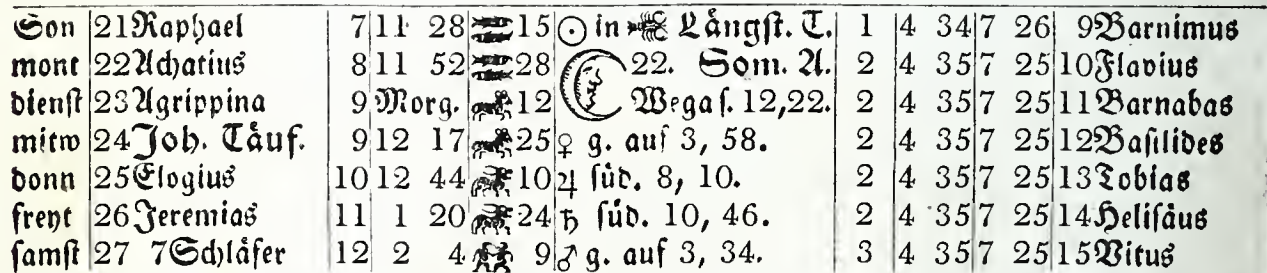 Son 21 Raphael 7 11 28 15 ☉ in Längst. T. 1 4 34 7 26 9 Barnimus
mont 22 Achatius 8 11 52 28 22. Som. A. 2 4 35 7 25 10 Flavius
dienst 23 Agrippina 9 Morg. 12 Wega s. 12,22. 2 4 35 7 25 11 Barnabas
mitw 24 Joh. Täuf. 9 12 17 25 ♀ g. auf 3, 58. 2 4 35 7 25 12 Basilides
donn 25 Elogius 10 12 44 10 ♃ süd. 8, 10. 2 4 35 7 25 13 Tobias
freyt 26 Jeremias 11 1 20 24 ♄ süd. 10, 46. 2 4 35 7 25 14 Helisäus
samst 27 7 Schläfer 12 2 4 9 ♂ g. auf 3, 34. 3 4 35 7 25 15 Vitus